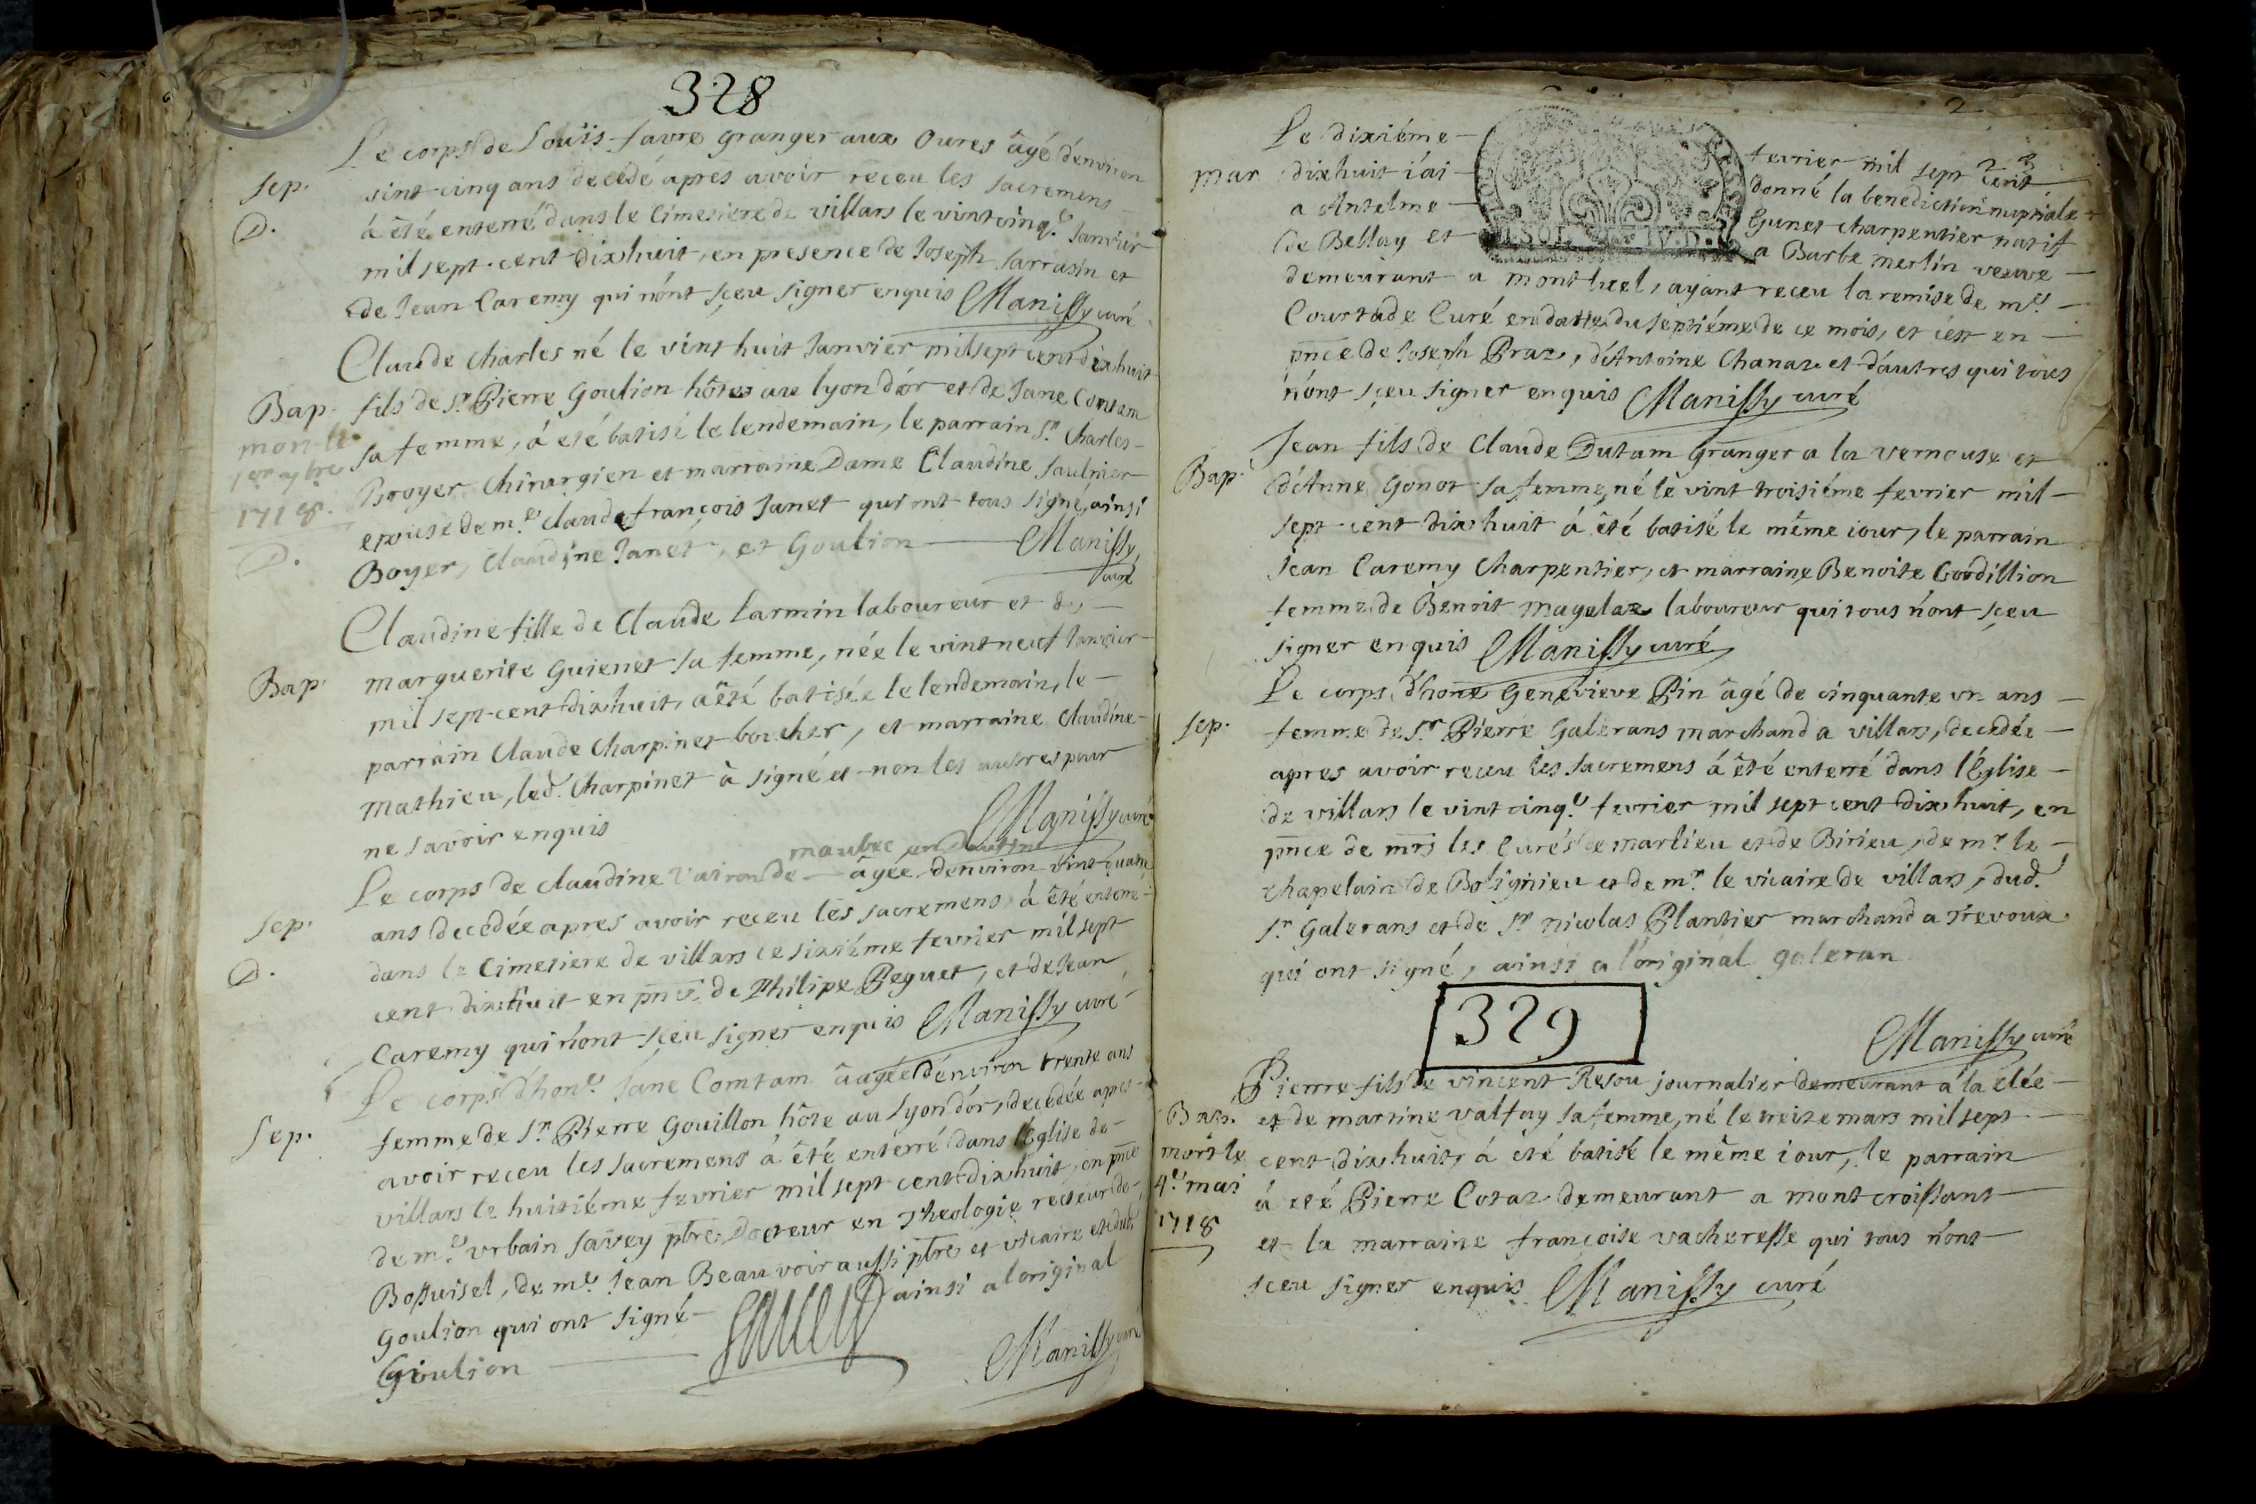 328
Le corps de Loüis favre granger aux Oures âgé d'environ
sep. sint-cinq ans décédé apres avoir receu les sacremens
D. á êté enterré dans le Cimetiere de villars le vint cinq.e Janvier
mil sept-cent dixhuit, en presence de Joseph Sarrasin et
de Jean Caremy qui n'ont sçeu signer enquis Manissy curé
Claude Charles né le vint huit Janvier mil sept cent dix huit
Bap. fils de Sr. Pierre Goulion hôte au lyon d'ór et de Jane Contam
mort le sa femme, á eté batisé le lendemain, le parrain Sr. Charles
1er 7bre Boyer Chirurgien et marraine Dame Claudine Saulnier
1718. epouse de m.e Claude françois Janet qui ont tous signé, ainsi
D. Boyer, Claudine Janet, et Goulion Manissy
curé
Claudine fille de Claude Larmin laboureur et de
Bap. marguerite Guienet sa femme, née le vint neuf Janvier
mil sept-cent-dixhuit, a êté batisée le lendemain, le
parrain Claude Charpinet boucher, et marraine Claudine
Mathieu, led. Charpinet à signé et non les autres pour
ne savoir enquis Manissy curé
maubec en Dauphiné
Le corps de claudine Vairon de âgée d'environ vint-quatre
sep. ans decedée apres avoir receu les sacremens á êté enterré
D. dans le Cimetiere de villars le sixiéme fevrier mil sept
cent dixhuit en pnce de Philipe Beguet, et de Jean
Caremy qui n'ont sçeu signer enquis Manissy curé
Le corps d'hon.e Jáne Comtam âagée d'énviron trente ans
Sep. femme de Sr. Pierre Gouillon hôte au Lyon d'ór, decedée apres
avoir receu les sacremens á êté enterré dans l'Eglise de
villars le huitiéme fevrier mil sept cent-dixhuit, en pnce
de m.e Urbain Savey ptre Docteur en Theologie recteur de
Bossuisel, de m.e Jean Beauvoir aussi ptre et vicaire et dud.
Goulion qui ont signé Savey ainsi a l'original
Goulion Manissy curé
2
Le dixiéme fevrier mil sept cent
mar. dixhuit i'ai donné la benediction nuptiale
a Antelme Gunet charpentier natif
de Bellay et a Barbe Merlin veuve
demeurant a montluel, ayant receu la remise de m.e
Courtade Curé en datte du septiéme de ce mois, et c'est en
pnce de Joseph Braz, d'Antoine Chanaz et d'autres qui tous
n'ont sçeu signer enquis Manissy curé
Jean fils de Claude Dutam granger a la vernouse et
Bap. d'Anne Gonot sa femme, né le vint troisiéme fevrier mil
sept cent dixhuit á êté batisé le même iour, le parrain
Jean Caremy Charpentier, et marraine Benoite Cordillion
femme de Benoit Magelaz laboureur qui tous n'ont sçeu
signer enquis Manissy curé
Le corps d'hone Geneviéve Pin âgé de cinquante un ans
sep. femme de Sr Pierre Galerans marchand a villars, decedée
apres avoir receu les sacremens á êté enterré dans l'Eglise
de villars le vint cinq.e fevrier mil sept cent dix huit, en
pnce de mrs les Curés de marlieu et de Birieu, de mr le
chapelain de Boligneu et de mr. le vicaire de villars, dud.
Sr Galerans et de Sr Nicolas Plantier marchand a Trevoux
qui ont signé, ainsi a l'original galeran
329
Manissy curé
Pierre fils de vincent Resou journalier demeurant á la clée
Bap. et de martine valfay sa femme, né le treize mars mil sept
mort le cent dix huit, á êté batisé le même iour, le parrain
4.e mai á eté Pierre Cotaz demeurant a mont croissant
1718 et la marraine françoise vacheresse qui tous n'ont
sceu signer enquis Manissy curé